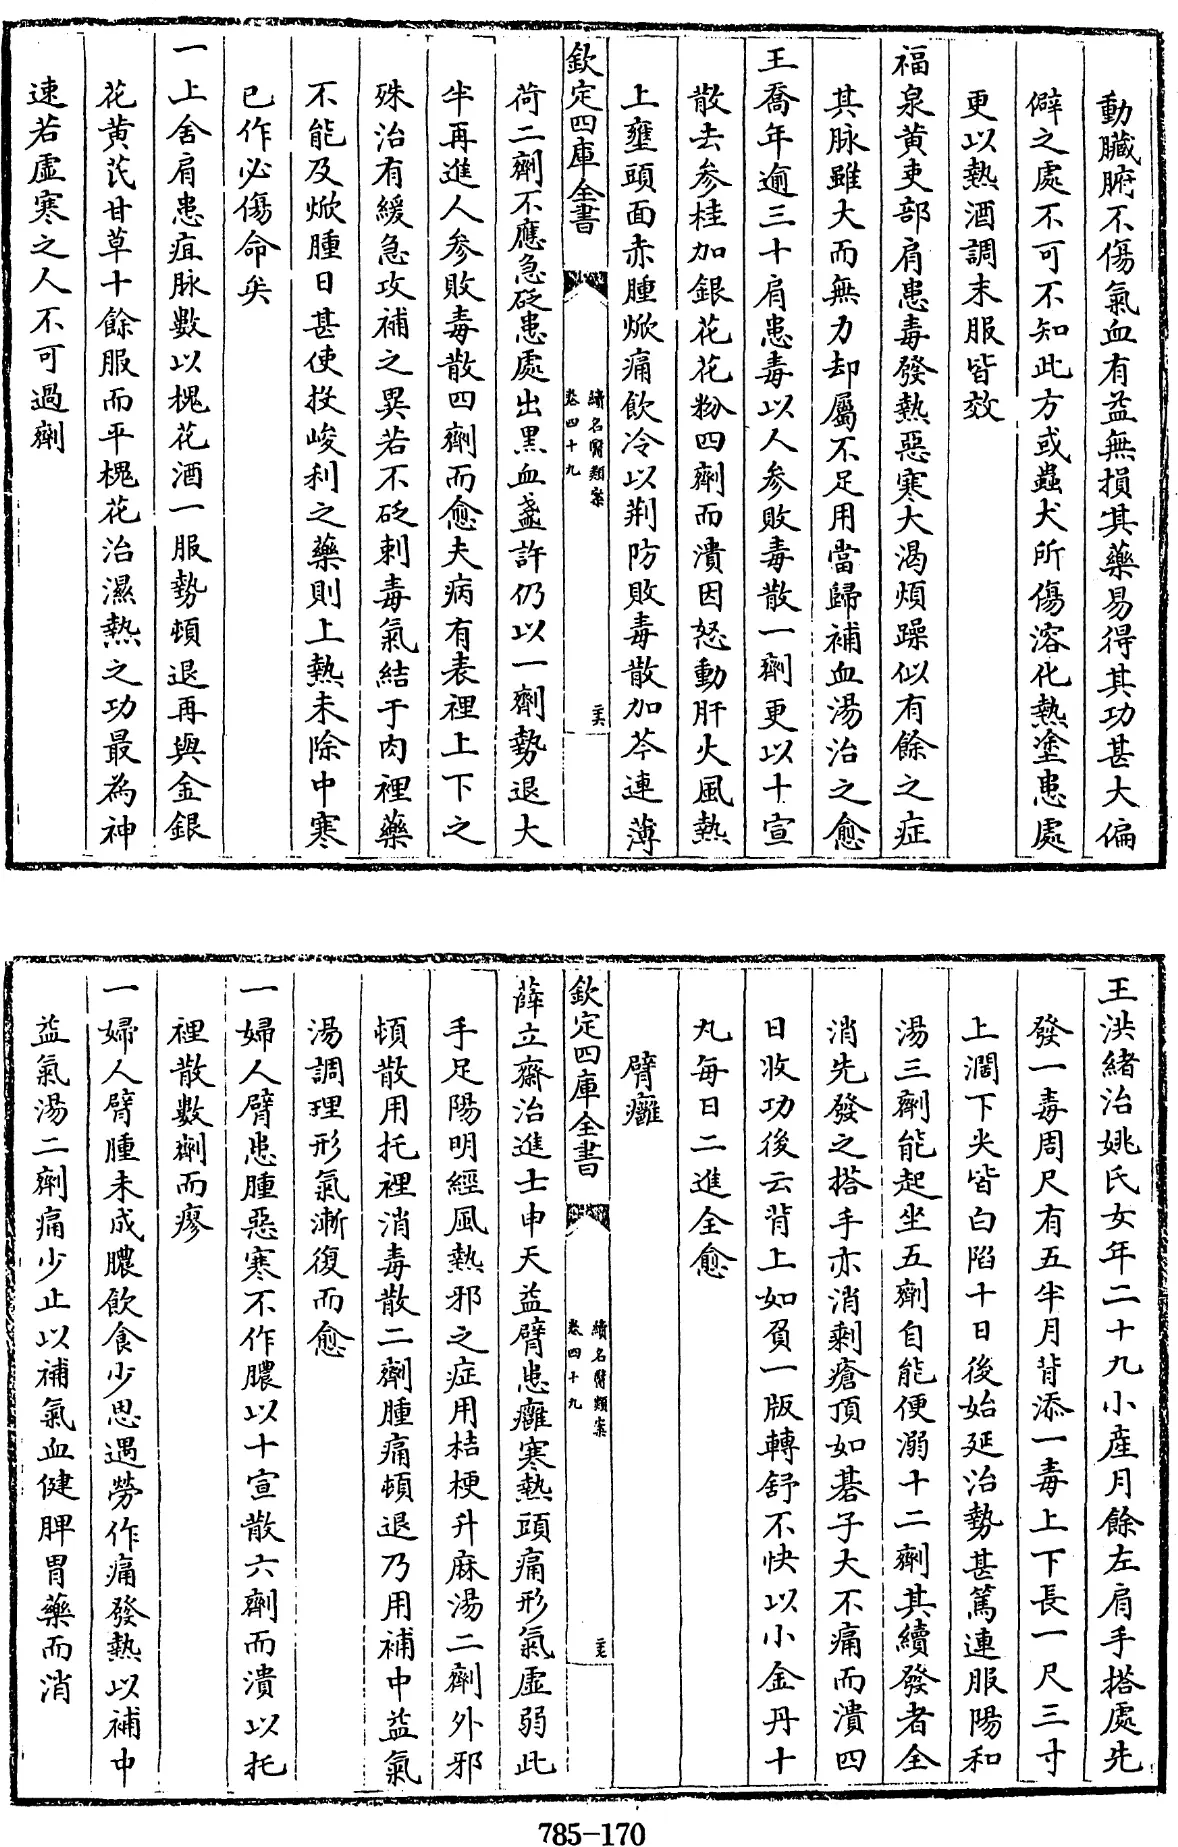 動臟腑不傷氣血有益無損其藥易得其功甚大偏
僻之處不可不知此方或蟲犬所傷溶化熱塗患處
更以熱酒調末服皆效
福泉黃吏部肩患毒發熱惡寒大渴煩躁似有餘之症
其脉雖大而無力却屬不足用當歸補血湯治之愈
王喬年逾三十肩患毒以人參敗毒散一劑更以十宣
散去参桂加銀花花粉四劑而潰因怒動肝火風熱
上壅頭面赤腫焮痛飲冷以荆防敗毒散加芩連薄
欽定四庫全書
續名醫類案
卷四十九
荷二劑不應急砭患處出黑血盞許仍以一劑勢退大
半再進人參敗毒散四劑而愈夫病有表裡上下之
殊治有緩急攻補之異若不砭刺毒氣結于肉裡藥
不能及焮腫日甚使投峻利之藥則上熱未除中寒
已作必傷命矣
一上舍肩患疽脉數以槐花酒一服勢頓退再與金銀
花黃芪甘草十餘服而平槐花治濕熱之功最為神
速若虛寒之人不可過劑
王洪緒治姚氏女年二十九小產月餘左肩手搭處先
發一毒周尺有五半月背添一毒上下長一尺三寸
上濶下尖皆白陷十日後始延治勢甚篤連服陽和
湯三劑能起坐五劑自能便溺十二劑其續發者全
消先發之搭手亦消剩瘡頂如碁子大不痛而潰四
日收功後云背上如負一版轉舒不快以小金丹十
丸每日二進全愈
臂癰
欽定四庫全書
續名醫類案
卷四十九
薛立齋治進士申天益臂患癰寒熱頭痛形氣虛弱此
手足陽明經風熱邪之症用桔梗升麻湯二劑外邪
頓散用托裡消毒散二劑腫痛頓退乃用補中益氣
湯調理形氣漸復而愈
一婦人臂患腫惡寒不作膿以十宣散六劑而潰以托
裡散數劑而瘳
一婦人臂腫未成膿飲食少思遇勞作痛發熱以補中
益氣湯二劑痛少止以補氣血健脾胃藥而消
785-170